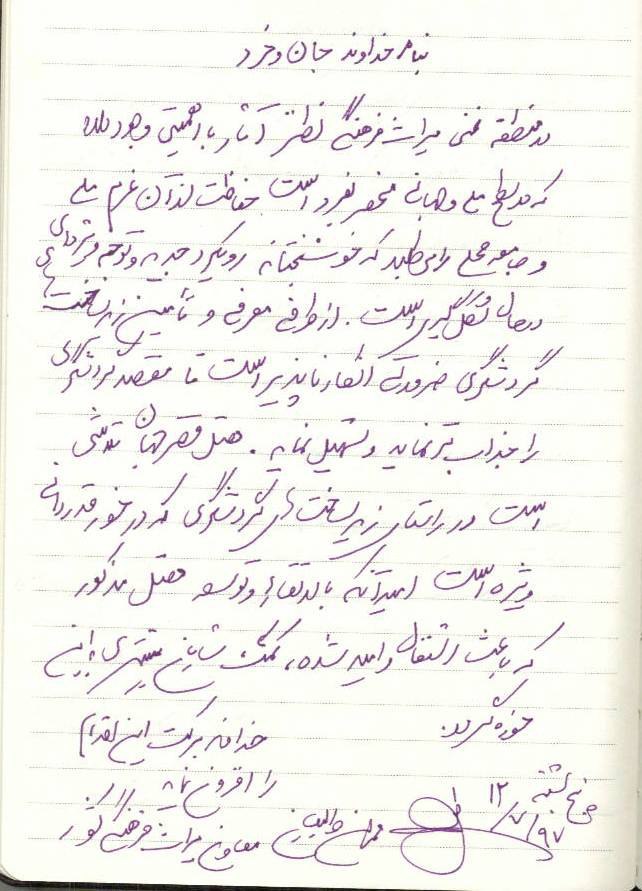 بنام خداوند جان و خرد
در منطقه غنی میراث فرهنگی نطنز آثار با اهمیتی وجود دارد
که در سطح ملی و جهانی منحصر بفرد است حفاظت از آن عزم ملی
و جامعه محلی را می طلبد که خوشبختانه رویکرد جدید و توجه
در حال شکل گیری است. از طرفی معرفی و تأمین زیرساخت های
گردشگری ضرورتی انکار ناپذیر است تا مقصد گردشگری
را جذاب تر نماید و تسهیل نماید. هتل قصر جهان تلاشی
است در راستای زیرساخت های گردشگری که در خور قدردانی
ویژه است امید آنکه با ارتقاء و توسعه هتل مذکور
که باعث اشتغال و امید شده، کمک شایان بیشتری به این
حوزه گردد.
خداوند برکت این اقدام
را افزون نماید
پنج شنبه ۹۷/۷/۱۲
محمدحسن طالبیان معاون میراث فرهنگی کشور